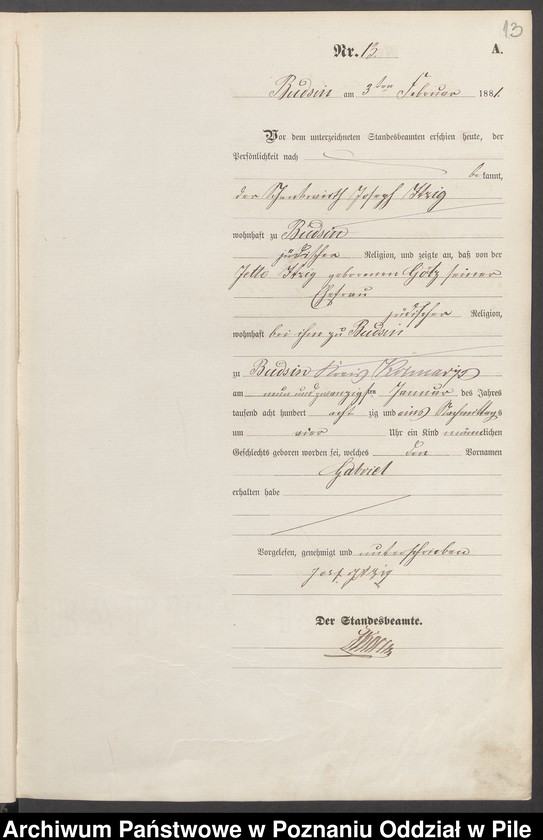 13
Nr. 13 A.
Budsin am 3ten Februar 1881.
Vor dem unterzeichneten Standesbeamten erschien heute, der
Persönlichkeit nach
bekannt,
der Schankwirth Joseph Itzig
wohnhaft zu Budsin
jüdischer Religion, und zeigte an, daß von der
Jette Itzig geborenen Götz seiner
Ehefrau
jüdischer Religion,
wohnhaft bei ihm zu Budsin
zu Budsin Kreis Kolmar
am neun und zwanzigsten Januar des Jahres
tausend acht hundert achtzig und eins Nachmittags
um vier Uhr ein Kind männlichen
Geschlechts geboren worden sei, welches den Vornamen
Gabriel
erhalten habe
Vorgelesen, genehmigt und unterschrieben
Josef Itzig
Der Standesbeamte.
Archiwum Państwowe w Poznaniu Oddział w Pile